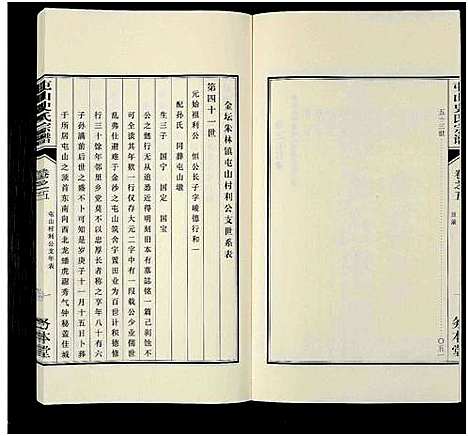 屯山史氏宗谱
卷之五
目录
五十三世
〇五一
务本堂
金坛朱林镇屯山村利公支世系表
第四十一世
元始祖利公 恒公长子字峻德行和一
配孙氏 同葬屯山墩
生三子 国才 国宁 国宝
公之懿行无从追悉不得明矣旧本有墓志惜一篇已剥蚀不
可全读其年欵一行仅存大元二字中有一段载公少业儒世
乱弗仕避难于金沙之屯山筑舍宇置田业为一世计积德修
行三十余年乡党莫不以忠厚长者称之享年八十有六
子孙满前后世之祯可知也是岁庚子十一月十五日卜葬
于所居屯山之颠首东南向西北龙蟠虎踞秀气钟秘盖佳城
屯山史氏宗谱
卷之五
屯山村利公支年表
务本堂